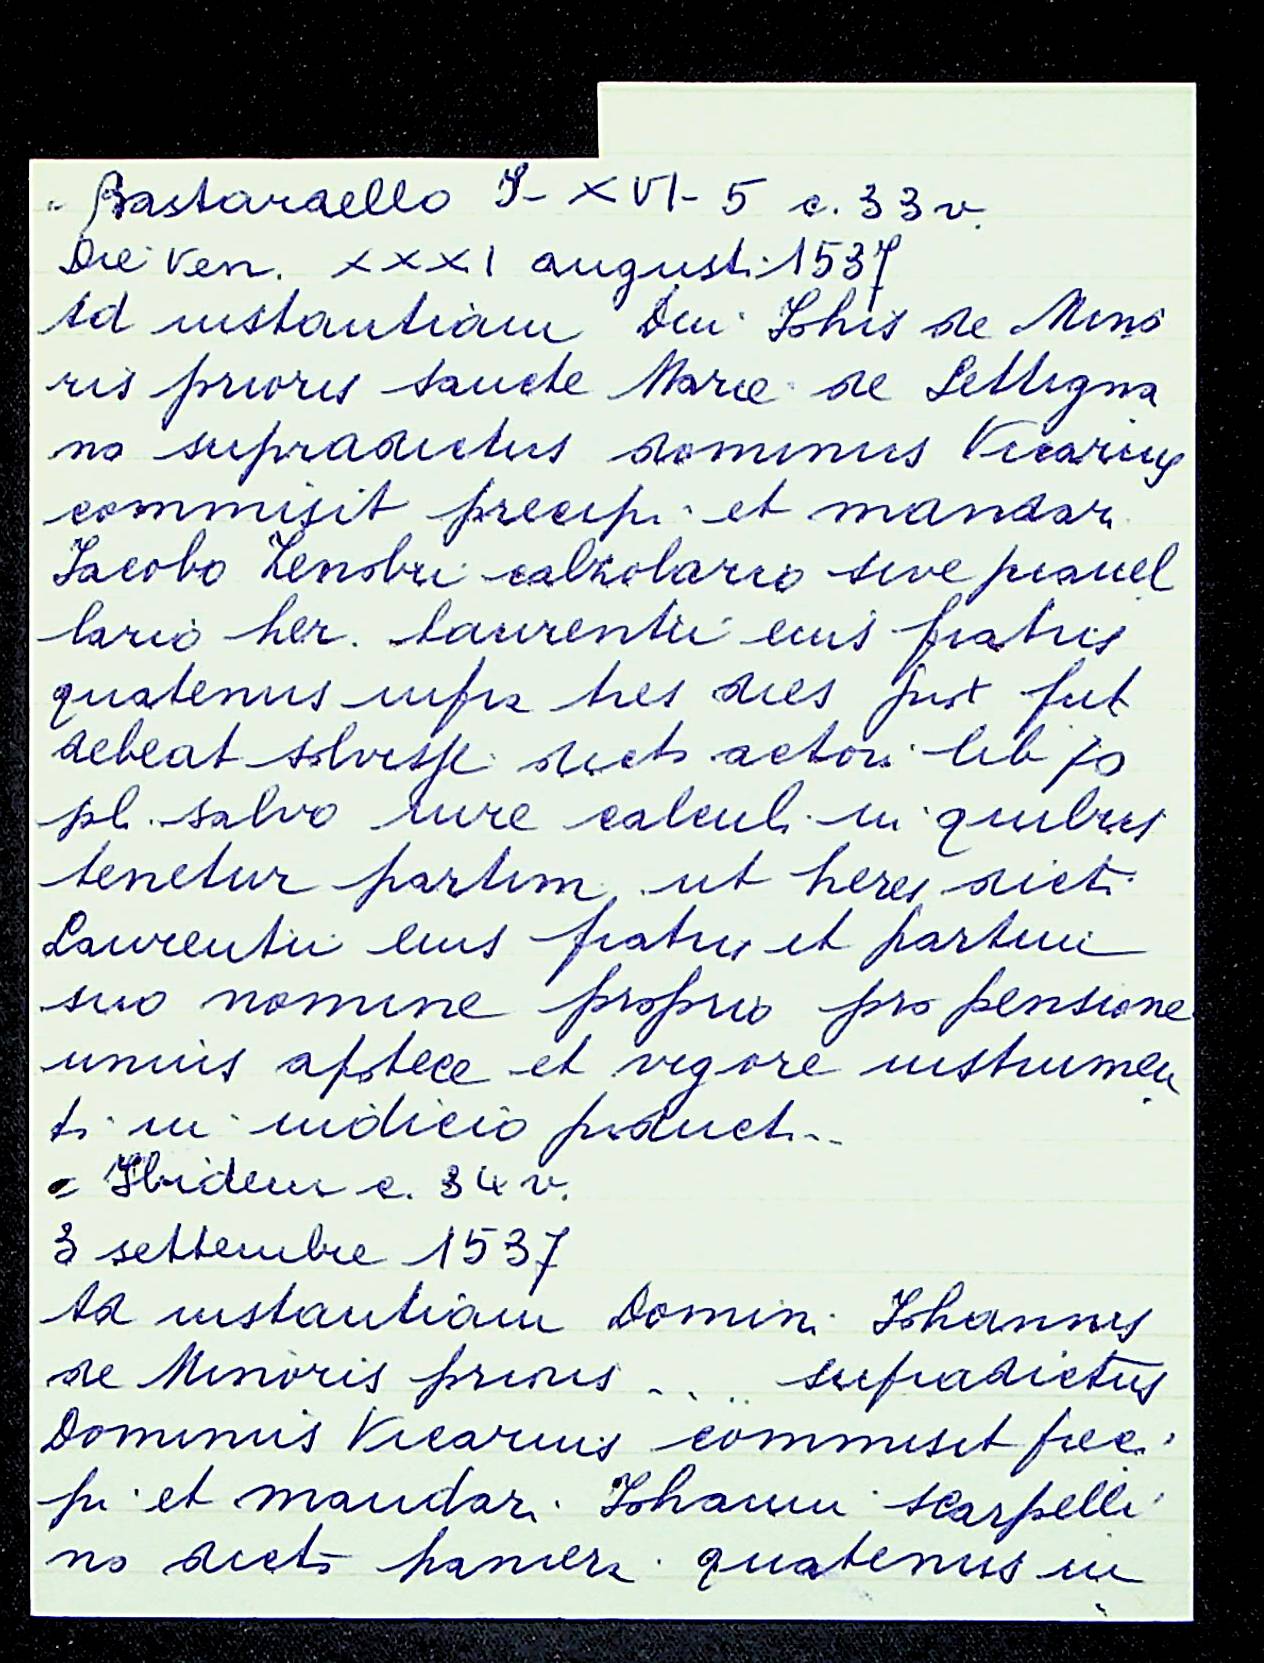 " Bastardello I- XVI- 5 c. 33 v.
Die Ven. XXXI augusti 1537
Ad instantiam Dni Johis de Mino
ris prioris Sancte Marie de Settigna
no supradictus dominus Vicarius
commisit precipi et mandari
Jacobo Zenobii calzolario sive pianel
lario her. Laurentii eius fratris
quatenus infra tres dies prox fut
debeat solvisse dicto actori lib 70
pl. salvo iure calculi in quibus
tenetur partim ut heres dicti
Laurentii eius fratris et partim
suo nomine proprio pro pensione
unius apotece et vigore instrumen
ti in iudicio producti..
= Ibidem c. 34 v.
3 settembre 1537
Ad instantiam Domini Johannis
de Minoris prioris .... supradictus
Dominus Vicarius commisit preci
pi et mandari Johanni scarpelli
no dicto paniera quatenus in